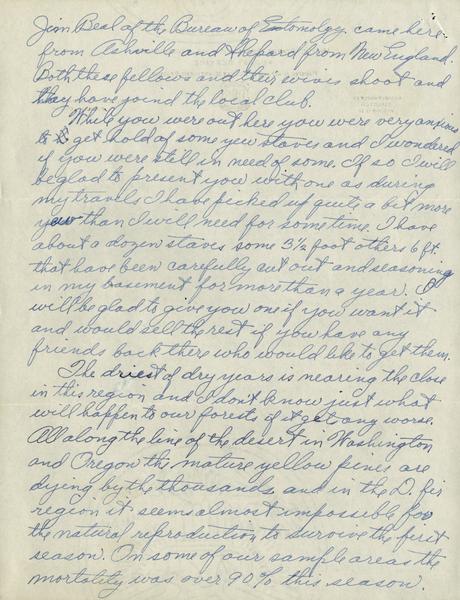 Jim Beal of the Bureau of Entomology came here
from Ashville and Shepard from New England.
Both these fellows and their wives shoot and
they have joind the local club.
While you were out here you were very anxious
to get hold of some yew staves and I wondered
if you were still in need of some. If so I will
be glad to present you with one as during
my travels I have picked up quite a bit more
yew than I will need for sometime. I have
about a dozen staves some 3½ foot others 6 ft.
that have been carefully cut out and seasoning
in my basement for more than a year. I
will be glad to give you one if you want it
and would sell the rest if you have any
friends back there who would like to get them.
The driest of dry years is nearing the close
in this region and I don't know just what
will happen to our forests if it gets any worse.
All along the line of the desert in Washington
and Oregon the mature yellow pines are
dying by the thousands and in the D. fir
region it seems almost impossible for
the natural reproduction to survive the first
season. On some of our sample areas the
mortality was over 90% this season.